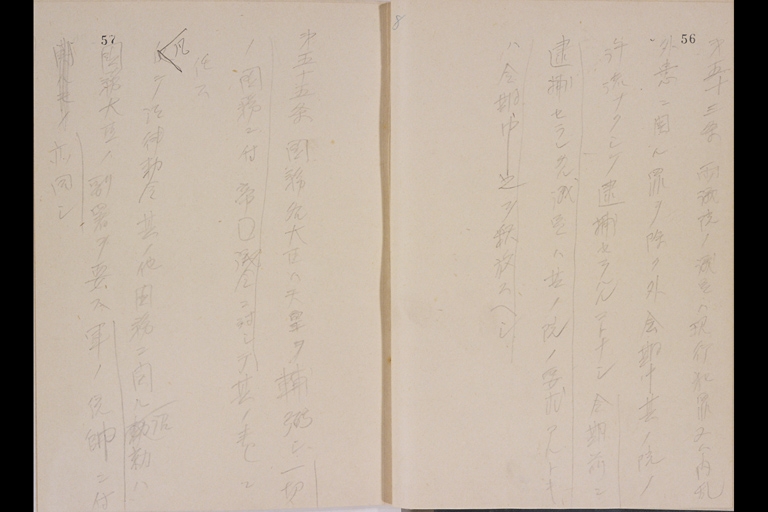 56
第五十三条 両議院ノ議員ハ現行犯罪又ハ内乱
外患ニ関ル罪ヲ除ク外会期中其ノ院ノ
許諾ナクシテ逮捕セラルルコトナシ会期前ニ
逮捕セラレタル議員ハ其ノ院ノ要求アルトキ
ハ会期中之ヲ釈放スヘシ
8
57
第五十五条 国務各大臣ハ天皇ヲ輔弼シ一切
ノ国務ニ付帝国議会ニ対シテ其ノ責ニ
任ス
凡テ法律勅令其ノ他国務ニ関ル詔勅ハ
国務大臣ノ副署ヲ要ス軍ノ統帥ニ付
亦同シ